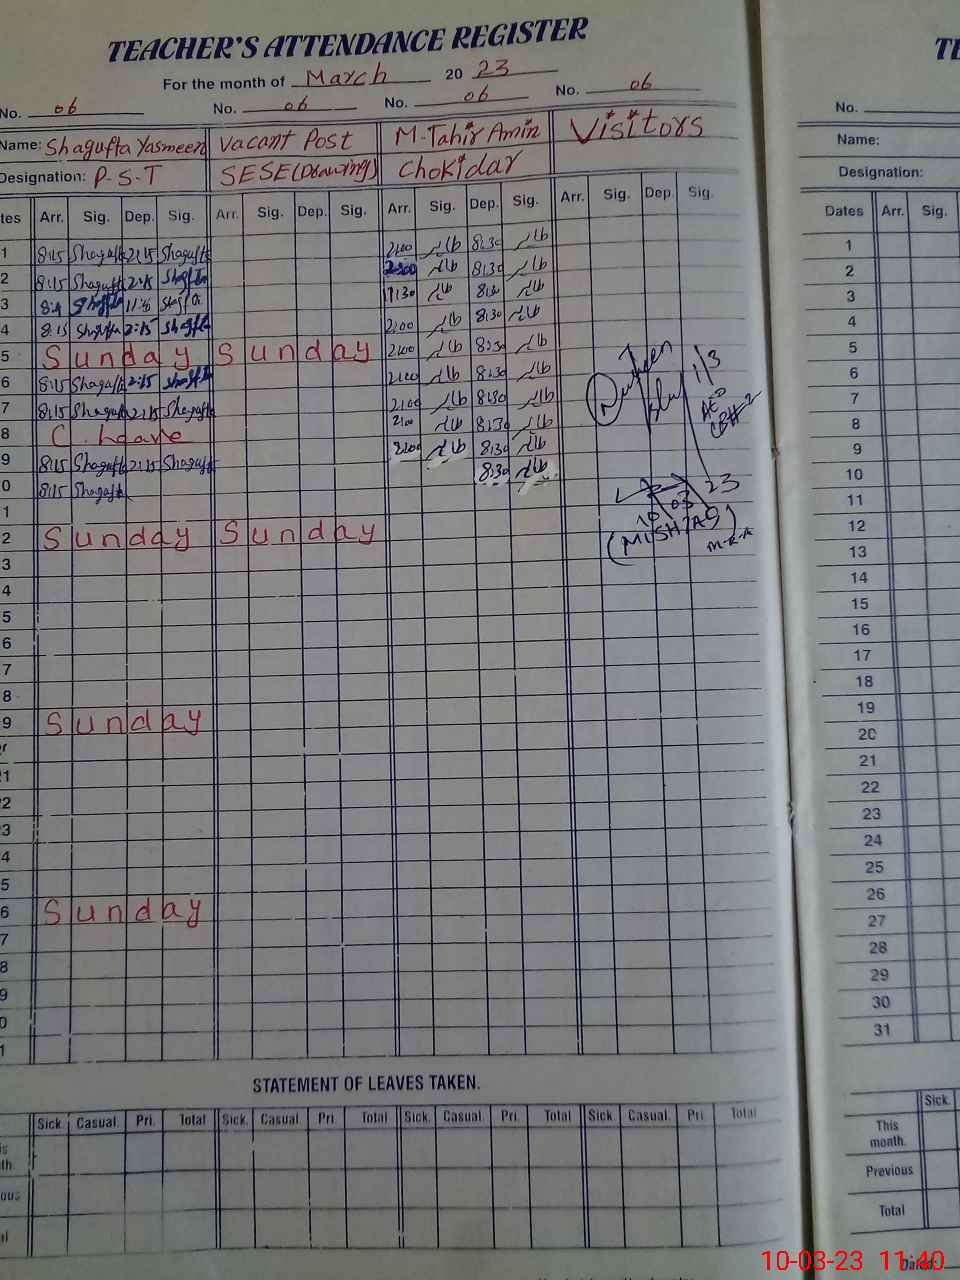 TEACHER'S ATTENDANCE REGISTER
For the month of March 20 23
No. 06 No. 06 No. 06 No. 06
Name: Shagufta Yasmeen Vacant Post M-Tahir Amin Visitors
Designation: P-S-T SESE(Drawing) Chokidar
tes Arr. Sig. Dep. Sig. Arr. Sig. Dep. Sig. Arr. Sig. Dep. Sig. Arr. Sig. Dep. Sig.
1 8:15 Shagufta 2:15 Shagufta 2:00 8:30
2 8:15 Shagufta 2:15 8:30
3 17:30 8:30
4 8:15 Shagufta 2:15 2:00 8:30
5 Sunday Sunday 2:00 8:30
6 8:15 Shagufta 2:15 2:00 8:30
7 8:15 Shagufta 2:15 Shagufta 2:00 8:30
8 C. Leave 2:00 8:30
9 8:15 Shagufta 2:15 Shagufta 2:00 8:30
0 8:15 Shagufta 8:30
1/3
AEO
10 03 23
(MISHTAQ)
1
2 Sunday Sunday
3
4
5
6
7
8
9 Sunday
1
2
3
4
5
6 Sunday
7
8
9
0
1
STATEMENT OF LEAVES TAKEN.
Sick. Casual. Pri. Total Sick. Casual. Pri. Total Sick. Casual. Pri. Total Sick. Casual. Pri. Total
is
th.
ous
al
TE
No.
Name:
Designation:
Dates Arr. Sig.
1
2
3
4
5
6
7
8
9
10
11
12
13
14
15
16
17
18
19
20
21
22
23
24
25
26
27
28
29
30
31
Sick.
This
month.
Previous
Total
Dated:
10-03-23 11:40